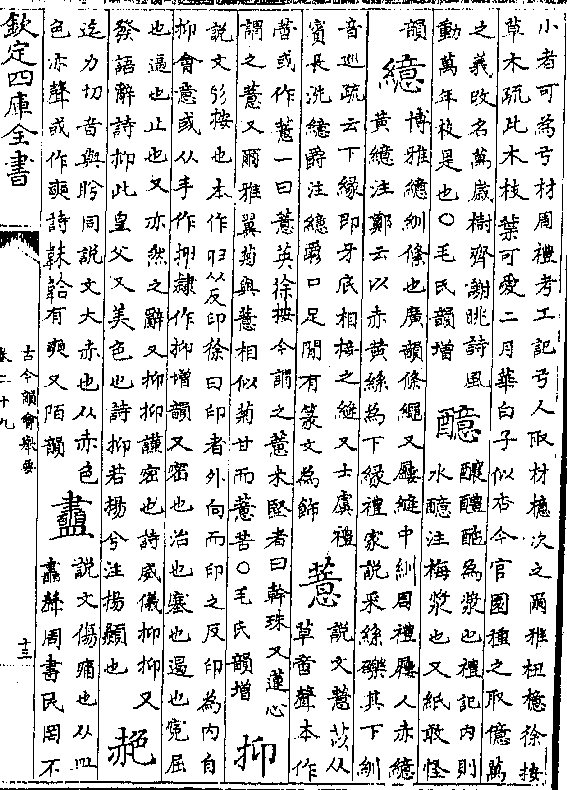 小者可為弓材周禮考工記弓人取材檍次之爾雅杻檍徐按
草木疏此木枝葉可愛二月華白子似杏今官園種之取億萬
之義改名萬歲樹齊謝朓詩風
動萬年枝是也〇毛氏韻增
醷
釀醴酏為漿也禮記内則
水醷注梅漿也又紙敢怪
韻
繶
博雅繶紃絛也廣韻絛繩又屨縫中紃周禮屨人赤繶
黄繶注鄭云以赤黄絲為下緣禮家説采絲礫其下紃
音巡疏云下緣即牙底相接之縫又士虞禮
賓長洗繶爵注繶爵口足閒有篆文為飾
薏
説文薏苡从
草啻聲本作
啻或作薏一曰薏英徐按今謂之薏米堅者曰簳珠又蓮心
謂之薏又爾雅翼菊與薏相似菊甘而薏苦〇毛氏韻增
抑
説文按也本作归从反印徐曰印者外向而印之反印為内自
抑會意或从手作隸作抑增韻又密也治也塞也遏也寃屈
也逼也止也又亦然之辭又抑抑謹密也詩威儀抑抑又
發語辭詩抑此皇父又美色也詩抑若揚兮注揚顙也
赩
迄力切音與肸同説文大赤也从赤色
色亦聲或作奭詩韎韐有奭又陌韻
衋
説文傷痛也从皿
周書民罔不
欽定四庫全書
古今韻會舉要
卷二十九
十三